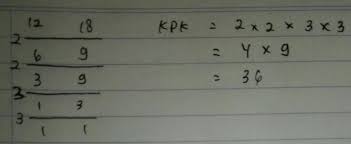 12 18 KPK = 2 x 2 x 3 x 3
2
6 9 = 4 x 9
2
3 9 = 36
3
1 3
3
1 1